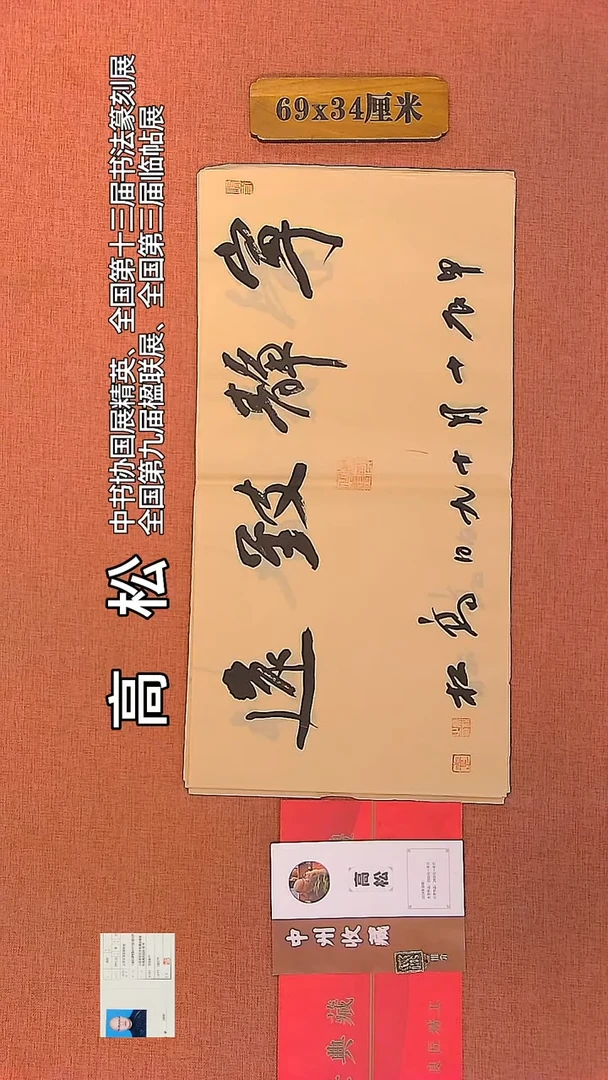 高 松
中书协国展精英、全国第十三届书法篆刻展
全国第九届楹联展、全国第三届临帖展
69x34厘米
寧靜致遠
甲辰十月十九日高松
高松
中州收藏
典藏